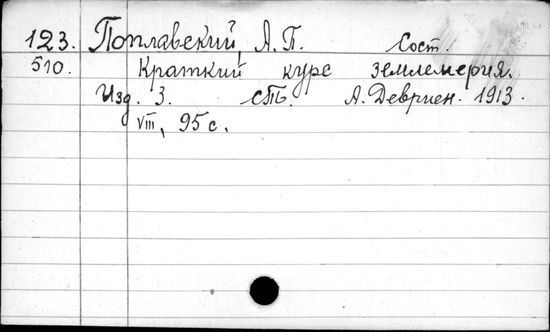 123. Поплавский, А. П. Сост.
510. Краткий курс землемерия.
Изд. 3. СПБ. А. Девриен. 1913.
VIII, 95 с.